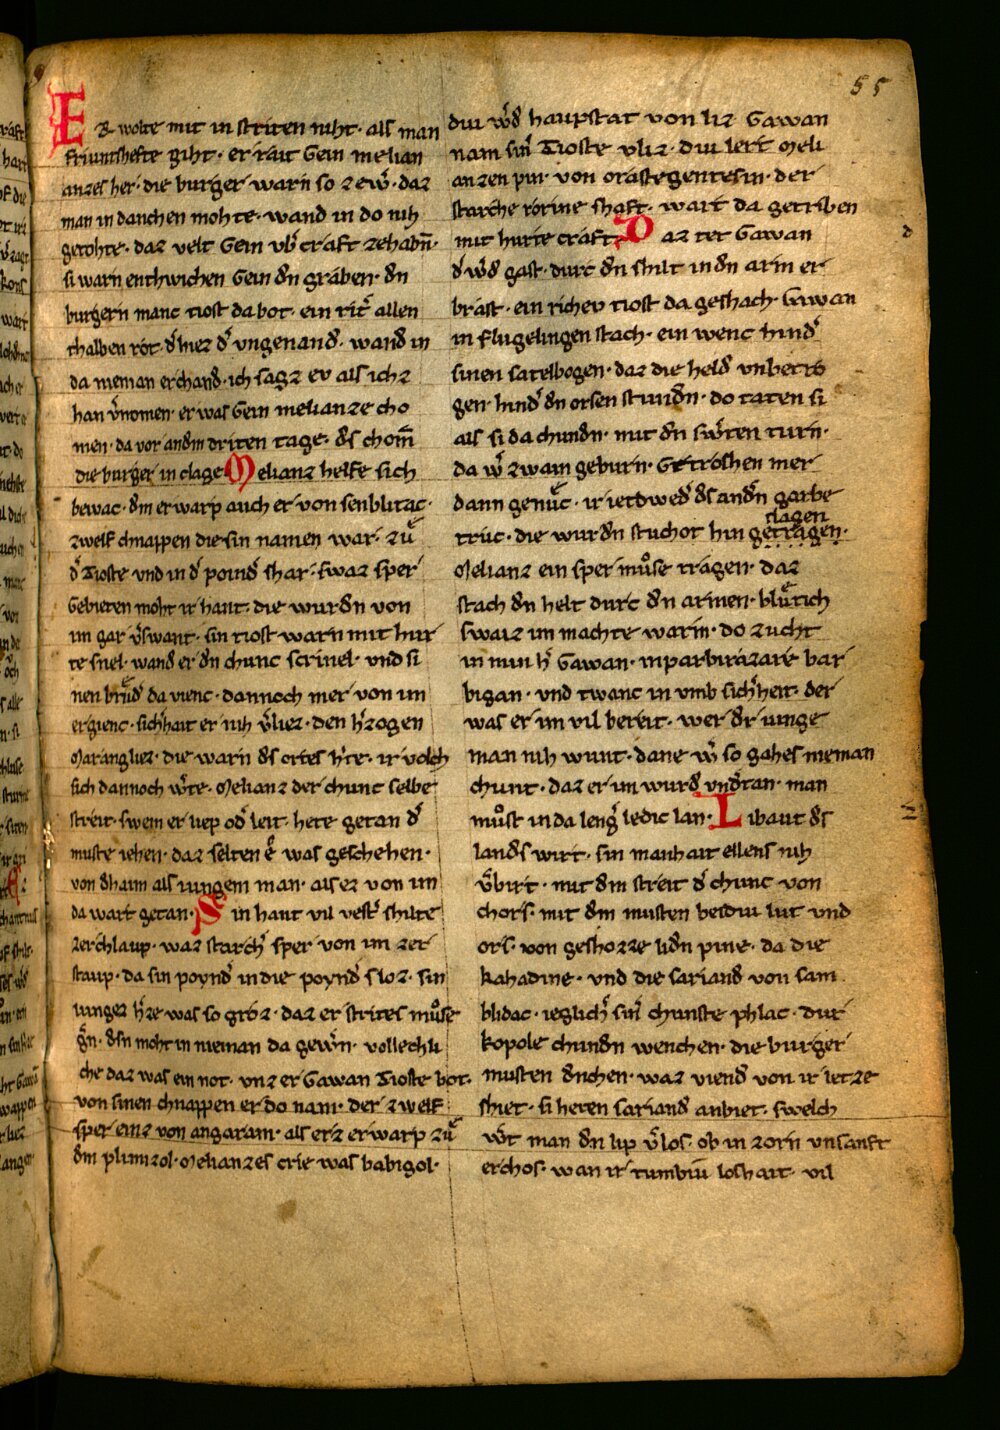 55
ER wolte mit in striten niht · als man
friuntshefte giht · er rait Gein melian
anzes her · die burger warn so zew̄ · daz
man in danchen mohte · wand in do nih
getohte · daz velt Gein vb̄ craft zehabn̄ ·
si warn enthwichen Gein dn graben · dn
burgern manc tiost da bot · ein rit̄ allen
thalben rot · d̄ hiez d̄ vngenand · wand in
da nieman erchand · ich sagz ev als ichz
han v̄nomen · er was Gein melianze cho
men · da vor andm driten tage · ds chom̄
die burger in clage Melianz helfe sich
bewac · dm er warp auch er von senblitac ·
zwelf chnappen die sin namen war · zuͤ
d̄ Tioste vnd in d̄ poind̄ shar · swaz sper
Gebieten moht ir hant · die wurdn von
im gar v̄swant · sin tiost warn mit hur
te snel · wand er dn chunc scrinel · vnd si
nen bruͤd da vienc · dannoch mer von im
ergienc · sich̄hait er nih v̄liez · den h̄zogen
Marangliez · die warn ds ortes h̄te · ir volch
sich dannoch w̄te · Melianz der chunc selbe
streit · swem er liep od̄ leit · hete getan d̄
muste iehen · daz selten e was geschehen ·
von dhaim als iungem man · als ez von im
da wart getan · Sin hant vil vest̄ shilte
zerchlaup · waz starch̄ sper von im zer
staup · da sin poynd̄ in die poynd̄ sloz · sin
iungez h̄ze was so groz · daz er strites muͦse
ḡn · dsn moht in nieman da gew̄n · vollechli
che daz was ein not · vnz er Gawan Tioste bot ·
von sinen chnappen er do nam · der zwelf
sper einz von angaram · als erz erwarp zuͤ
dm plimizol · Melianzes crie was babigol ·
diu w̄d haupstat von liz Gawan
nam sin̄ Tioste vliz · diu lert Meli
anzen pin · von orastegentesin · der
starche rorine shaft · wart da getriben
mit hurte craft · Daz tet Gawan
d̄ w̄d gast · durc dn shilt in dn arm er
brast · ein richev tiost da geshach · Gawan
in flugelingen stach · ein wenc hind̄
sinen satelbogen · daz die held vnbetro
gen · hind̄ dn orsen stundn · do taten si
als si da chundn · mit dn sw̄ten turn ·
da w̄ zwain geburn · Getroshen mer
dann genuͤc · ir ietdwed̄ ds andn garbe
slagen
truc · die wurdn stuchot hin getragen ·
Melianz ein sper muͦse tragen · daz
stach dn helt durc dn armen · bluͤtich
swaiz im machte warm · do zucht
in min h̄ Gawan · inparbirazare bar
bigan · vnd twanc in vmb sich̄heit · der
was er im vil bereit · wer dr iunge
man nih wunt · dane w̄ so gahes nieman
chunt · daz er im wurd vnd̄tan · man
muͦst in da lenḡ ledic lan · Libaut ds
lands wirt · sin manhait ellens nih
v̄birt · mit dm streit d̄ chunc von
chors · mit dm musten beidiu lut vnd
ors · von geshozze lidn pine · da die
kahadine · vnd die sariand von sam
blidac · ieglich̄ sin̄ chunste phlac · dur
kopole chundn wenchen · die burger
musten dnchen · waz viend von ir letze
shiet · si heten sariand anbiet · swelch
w̄t man dn lip v̄los · ob in zorn vnsanft
erchos · wan ir tumbiu loshait · vil